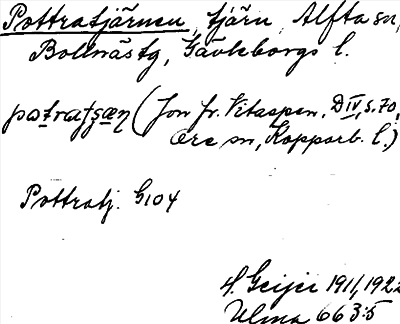 Pottratjärnen, tjärn, Alfta sn,
Bollnästg, Gävleborgs l.
(Jon fr. Vitaspen, D IV, s. 70,
Ore sn, Kopparb. l.)
Pottratj. G104
H. Geijer 1911, 1922
Ulma 663:5